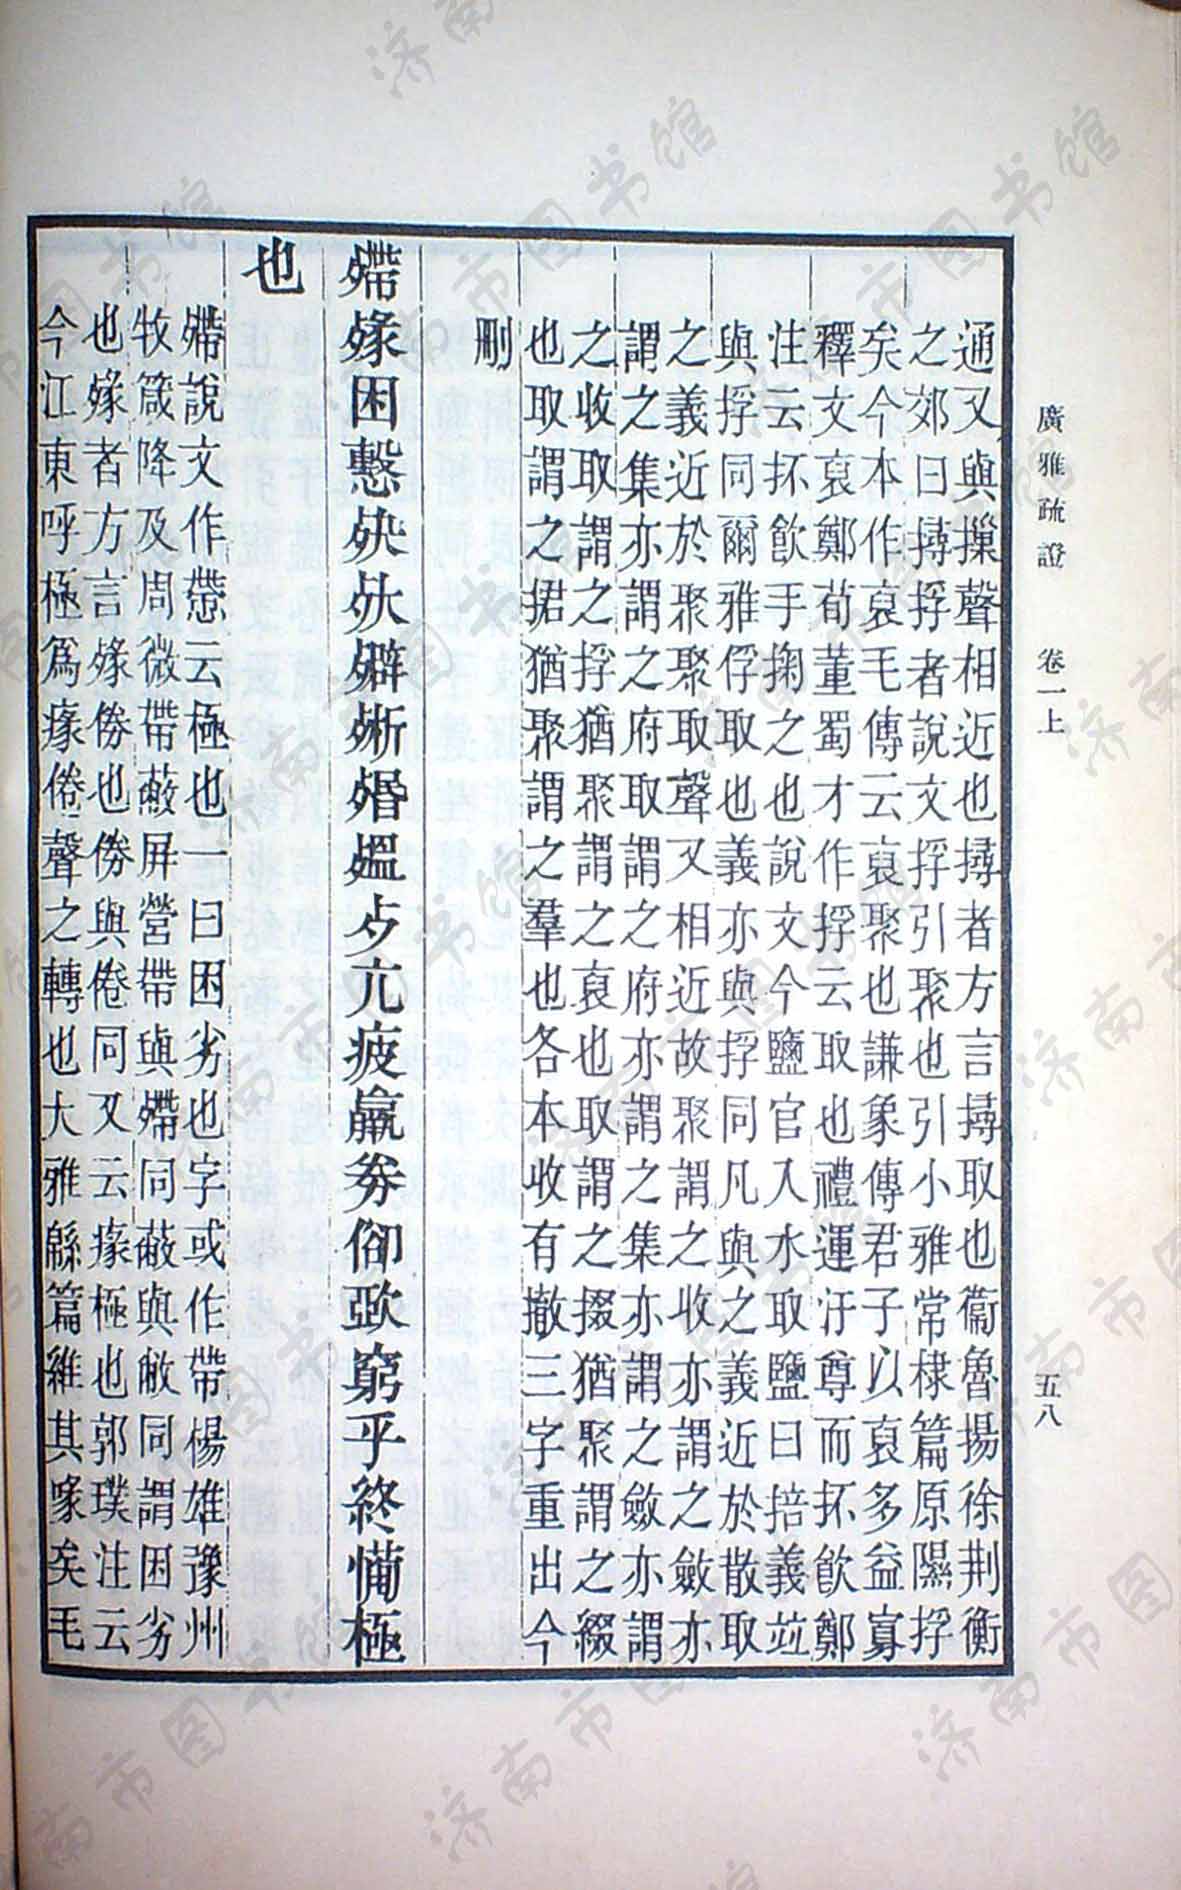 廣雅疏證　卷一上　五八
通又與撡聲相近也撏者方言撏取也衞魯揚徐荆衡
之郊曰撏捊者說文捊引聚也引小雅常棣篇原隰捊
矣今本作裒毛傳云裒聚也謙象傳君子以裒多益寡
釋文裒鄭荀董蜀才作捊云取也禮運汙尊而抔飮鄭
注云抔飮手掬之也說文今鹽官入水取鹽曰掊義竝
與捊同爾雅俘取也義亦與捊同凡與之義近於散取
之義近於聚聚取聲又相近故聚謂之收亦謂之斂亦
謂之集亦謂之府取謂之府亦謂之集亦謂之斂亦謂
之收取謂之捊猶聚謂之裒也取謂之掇猶聚謂之綴
也取謂之捃猶聚謂之羣也各本收有撤三字重出今
刪
㿃㾱困憊殃㱼㱸㱤殙殟歺亢疲羸劵㑢㱛窮乎終㥶極
也
說文作㦅云極也一曰困劣也字或作帶楊雄豫州
牧箴降及周微帶蔽屏營帶與同蔽與敝同謂困劣
也者方言㾱劵也劵與倦同又云瘃極也郭璞注云
今江東呼極爲瘃倦聲之轉也大雅緜篇維其喙矣毛